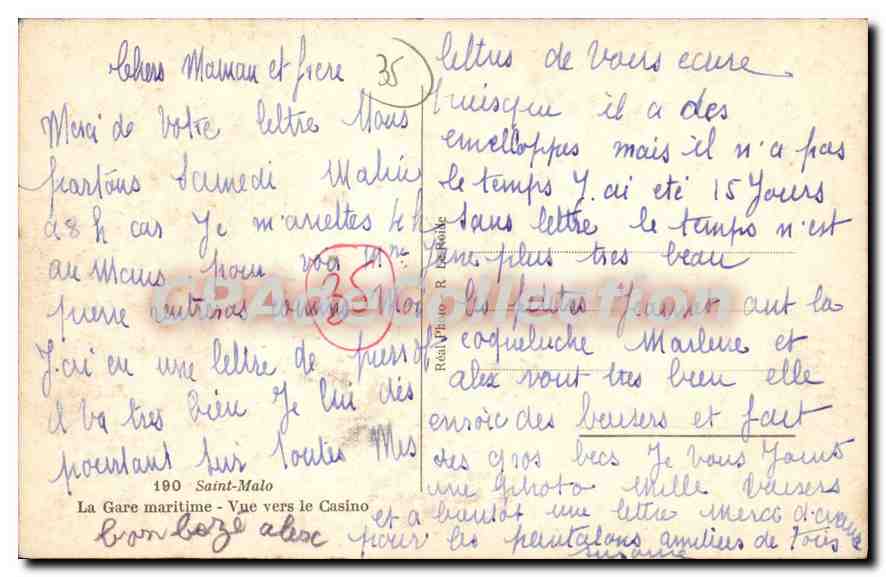 Chers Maman et frere
35
Merci de votre lettre Nous
partons Samedi Matin
a 8 h car Je m'arrettes 4 h
au Mans pour voir Mme
pierre rentreras
35
J.ai eu une lettre de pierrot
il va tres bien Je lui dés
pourtant sur toutes Mes
190 Saint-Malo
La Gare maritime - Vue vers le Casino
bon baze alex
Réal-Photo R. Le Roide
lettres de vous ecrire
puisque il a des
envelloppes mais il n'a pas
le temps J.ai eté 15 Jours
sans lettre le temps n'est
plus tres beau
les petites Jeannet ont la
coqueluche Marlene et
alex vont tres bien elle
envoie des baisers et fait
des gros becs Je vous Joins
une photo mille baisers
et a bientot une lettre merci d'avance
pour les pantalons amitiees de tous
suzanne
CPA Collection